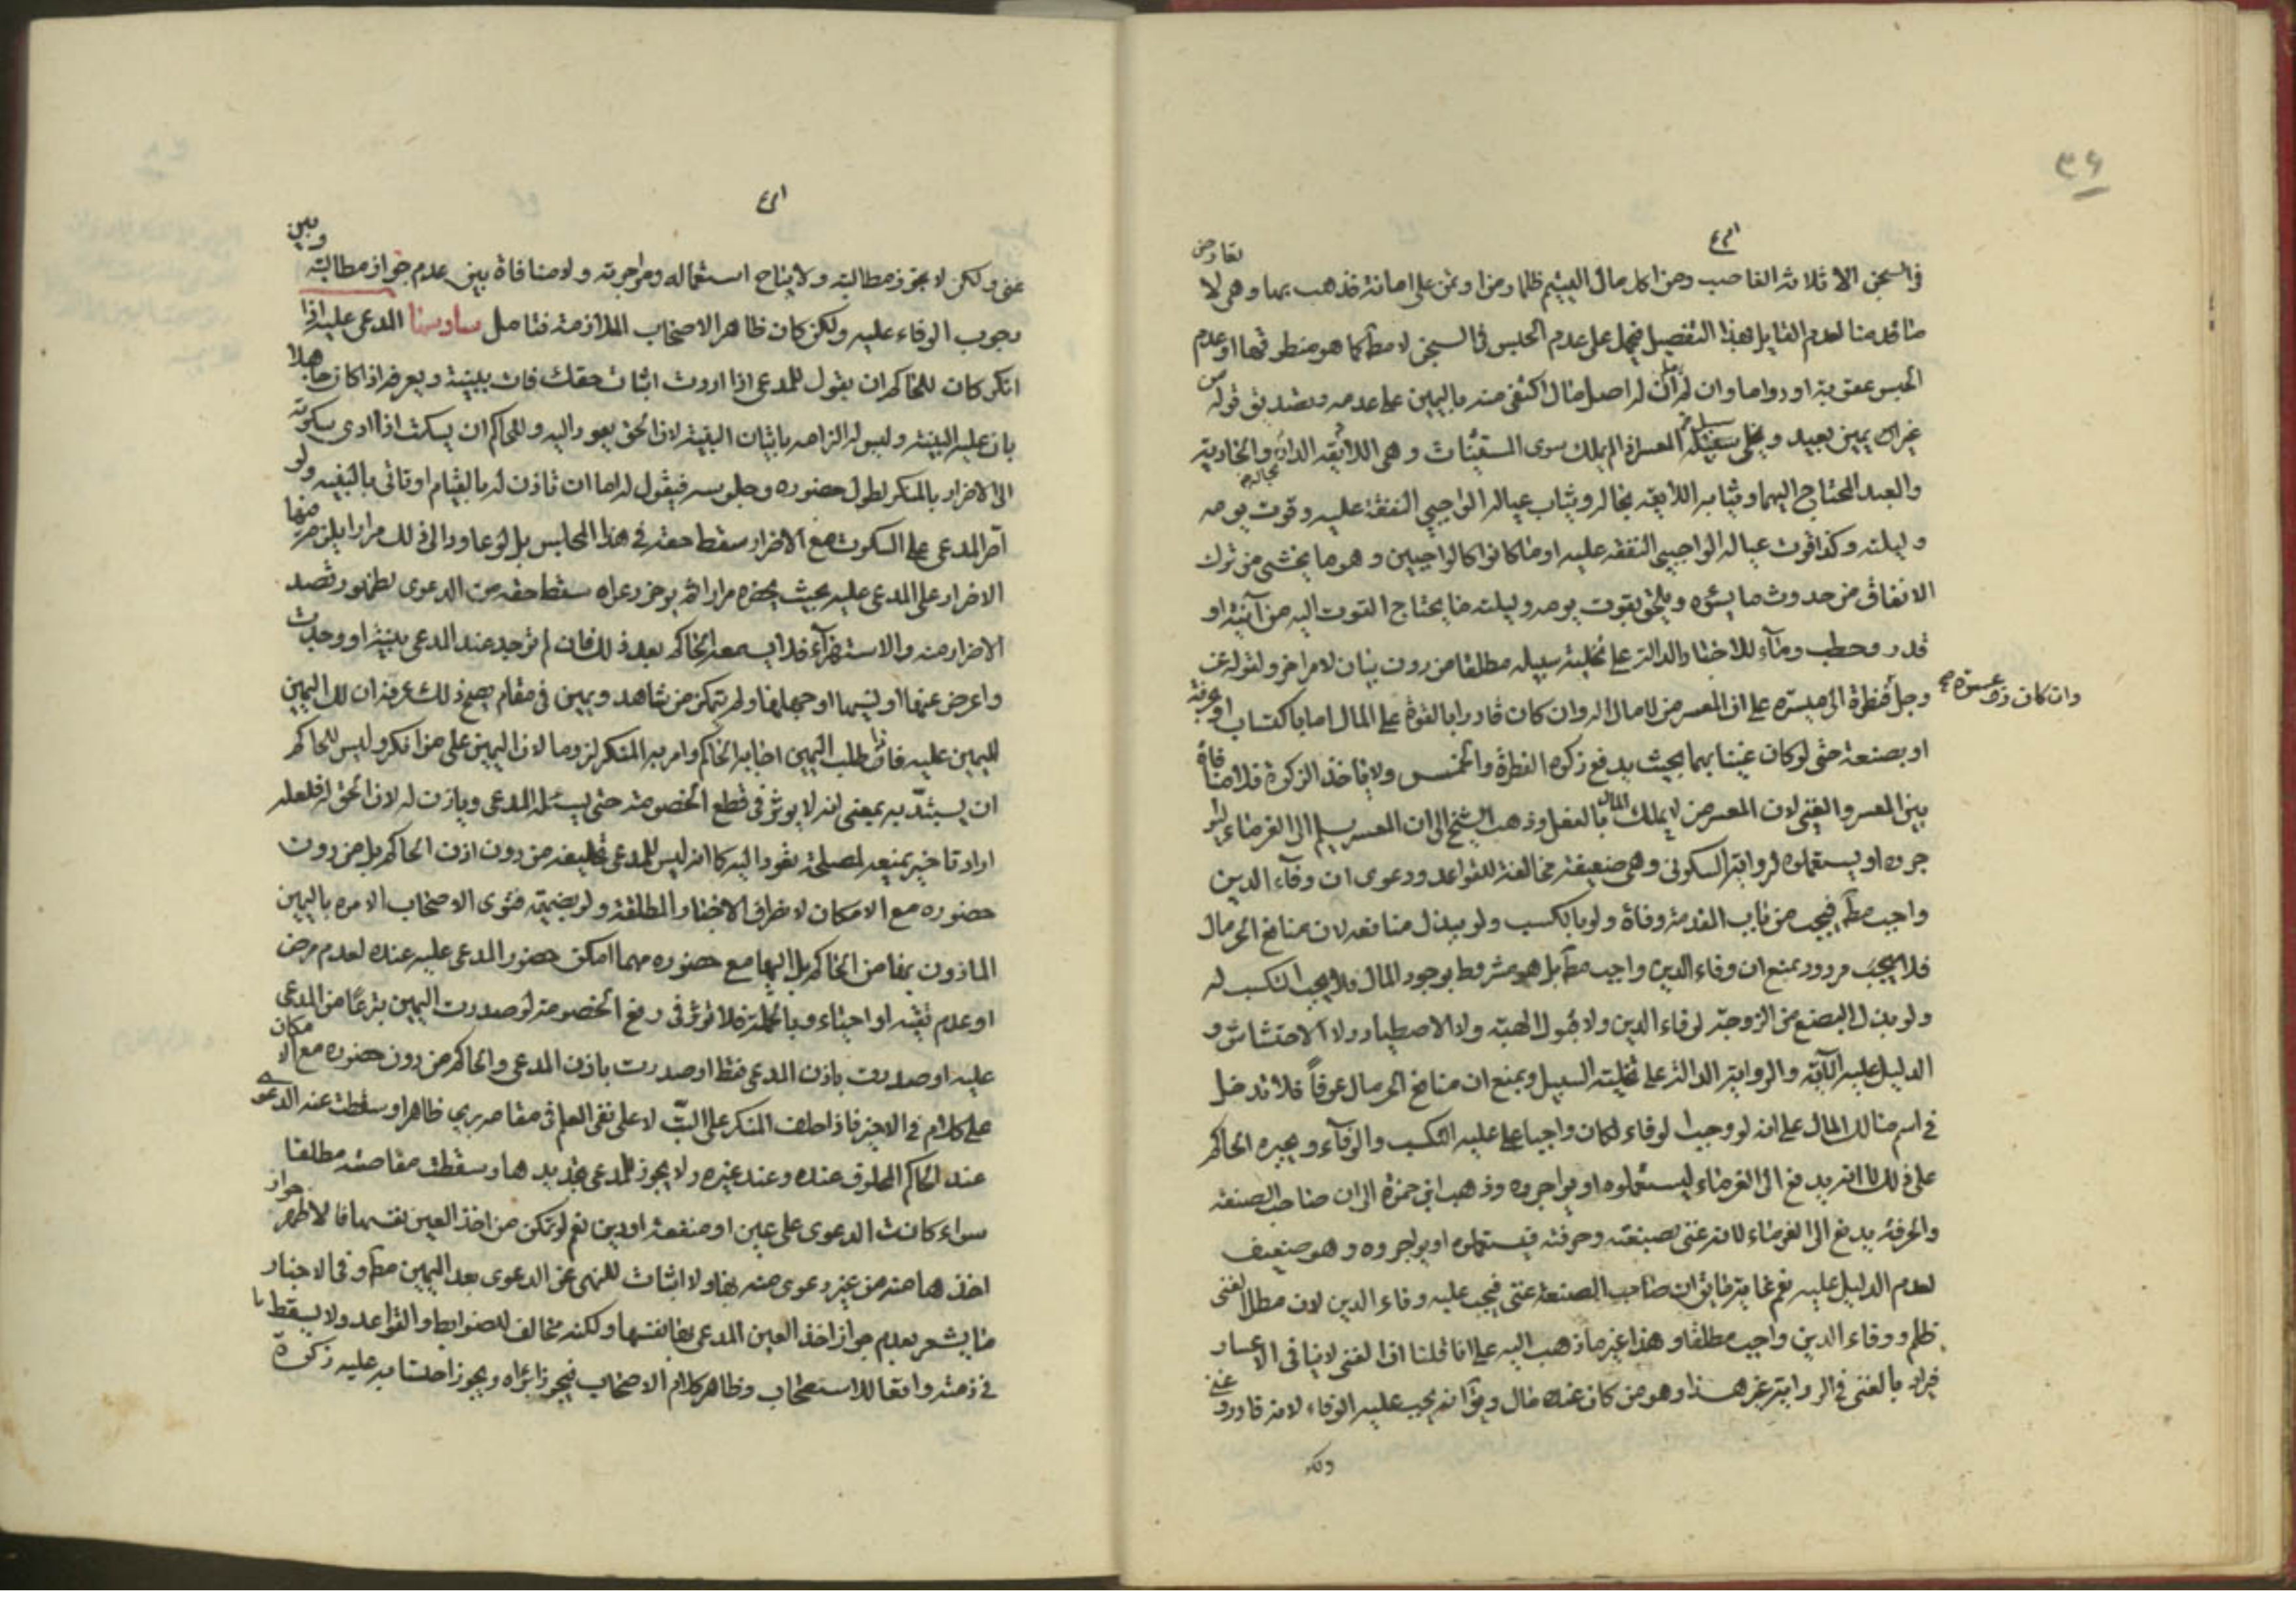 ٣٦
في السجن الا ثلاثة الغاصب ومن اكل مال اليتيم ظلما ومن اوتمن على امانة فذهب بها وهي لا تعارض
ما قدمنا لعدم القايل بهذا التفصيل فيحمل على عدم الحبس في السجن لا مطلقا كما هو منطوقها او عدم
الحبس عقوبة او دواما وان لم يكن له اصل مال اكتفى منه باليمين على عدمه وتصديق قوله من
غير يمين بعيد ويخلى سبيله المعسر اذا لم يملك سوى المستثنيات وهي اللايقة الدار والخادمة
والعبد المحتاج اليهما وثيابه اللايقة بحاله وثياب عياله الواجبي النفقة عليه وقوت يومه
وليلته وكذا قوت عياله الواجبي النفقة عليه او ما كانوا كالواجبين وهو ما يخشى من ترك
الانفاق من حدوث ما يسؤه ويلحق بقوت يومه وليلته ما يحتاج القوت اليه من آنية او
قدر وحطب وماء للاخبار الدالة على تخلية سبيله مطلقا من دون بيان لامر اخر ولقوله عز
وجل فنظرة الى ميسرة على ان المعسر من لا مال له وان كان قادرا بالقوة على المال اما باكتساب او حرفة
وان كان ذو عسرة صح
او بصنعة حتى لو كان غنيا بهما بحيث يدفع زكوة الفطرة والخمس ولا ياخذ الزكوة فلا منافاة
بين المعسر والغني لان المعسر من لا يملك المال بالفعل وذهب الشيخ الى ان المعسر يسلم الى الغرماء ليوا
جروه او يستعملوه لرواية السكوني وهي ضعيفة مخالفة للقواعد ودعوى ان وفاء الدين
واجب مطلقا فيجب من باب المقدمة وفاؤه ولو بالكسب ولو ببذل منافعه لان منافع الحر مال
فلا يجب مردود بمنع ان وفاء الدين واجب مطلقا بل هو مشروط بوجود المال فلا يجب التكسب له
ولو بذل البضع من الزوجة لوفاء الدين ولا قبول الهبة ولا الاصطياد ولا الاحتشاش و
الدليل عليه الآية والرواية الدالة على تخلية السبيل ويمنع ان منافع الحر مال عرفاً فلا تدخل
في اسم مالك المال على انه لو وجب الوفاء لكان واجبا عليه التكسب والوفاء ويجبره الحاكم
على ذلك لا انه يدفع الى الغرماء ليستعملوه او يواجروه وذهب ابن حمزة الى ان صاحب الصنعة
والحرفة يدفع الى الغرماء لانه غني بصنعته وحرفته فيستعملوه او يواجروه وهو ضعيف
لعدم الدليل عليه نعم غاية ما يق ان صاحب الصنعة غني فيجب عليه وفاء الدين لان مطل الغني
ظلم ووفاء الدين واجب مطلقا وهذا غير ما ذهب اليه على انا قلنا ان الغني لا ينافي الاعسار
فيراد بالغني في الرواية غير هذا وهو من كان عنده مال ويق انه يجب عليه الوفاء لانه قادر وغني
ولكن
غني ولكن لا يجوز مطالبته ولا يباح استعماله ومواجرته ولا منافاة بين عدم جواز مطالبته وبين
وجوب الوفاء عليه ولكن كان ظاهر الاصحاب الملازمة فتامل سادسها المدعى عليه اذا
انكر كان للحاكم ان يقول للمدعي اذا اردت اثبات حقك فات ببينة ويعرفه اذا كان جاهلا
بان عليه البينة وليس له الزامه باتيان البينة لان الحق يعود اليه وللحاكم ان يسكت اذا ادى سكوته
الى الاضرار بالمنكر لطول حضوره وجلوسه فيقول له اما ان تاذن له بالقيام او تاتي بالبينة ولو
اصر المدعي على السكوت مع الاضرار سقط حقه في هذا المجلس بل لو عاود الى ذلك مرارا يلزم منها
الاضرار على المدعى عليه بحيث يحضره مرارا ثم يوخر دعواه سقط حقه من الدعوى لظهور قصد
الاضرار منه والاستهزاء فلا يسمعه الحاكم بعد ذلك فان لم توجد عند المدعي بينة او وجدت
واعرض عنها او نسيها او جهلها ولم يتمكن من شاهد ويمين في مقام يصح ذلك عرفه ان لك اليمين
لليمين عليه فاذا طلب اليمين اجابه الحاكم وامر به المنكر لزوما لان اليمين على من انكر وليس للحاكم
ان يستبد به بمعنى انه لا يوثر في قطع الخصومة حتى يسئله المدعي وياذن له لان الحق له فلعله
اراد تاخير يمينه لمصلحة تعود اليه كما انه ليس للمدعي تحليفه من دون اذن الحاكم بل من دون
حضوره مع الامكان لانصراف الاخبار المطلقة ولو بضميمة فتوى الاصحاب الامرة باليمين
الماذون بها من الحاكم بل اليها مع حضوره مهما امكن حضور المدعى عليه عنده لعدم مرض
او عدم تقية او احياء وبالجملة فلا توثر في رفع الخصومة لو صدرت اليمين تبرعًا من المدعى
عليه او صدرت باذن المدعي فقط او صدرت باذن المدعي والحاكم من دون حضوره مع الامكان
على كلام في الاخير فاذا حلف المنكر على البت لا على نفي العلم في مقام برى ظاهرا وسقطت عنه الدعوى
عند الحاكم المحلوف عنده وعند غيره ولا يجوز للمدعي تجديدها وسقطت مقاصته مطلقا
سواء كانت الدعوى على عين او منفعة او دين نعم لو تمكن من اخذ العين نفسها فالاظهر جواز
اخذها منه من غير دعوى منه بها ولا اثبات للنهي عن الدعوى بعد اليمين مطلقا وفي الاخبار
ما يشعر بعدم جواز اخذ العين المدعى بها نفسها ولكنه مخالف للضوابط والقواعد ولا يسقط ما
في ذمته واقعا للاستصحاب وظاهر كلام الاصحاب فيجوز ابراه ويجوز احتسابه عليه زكوة